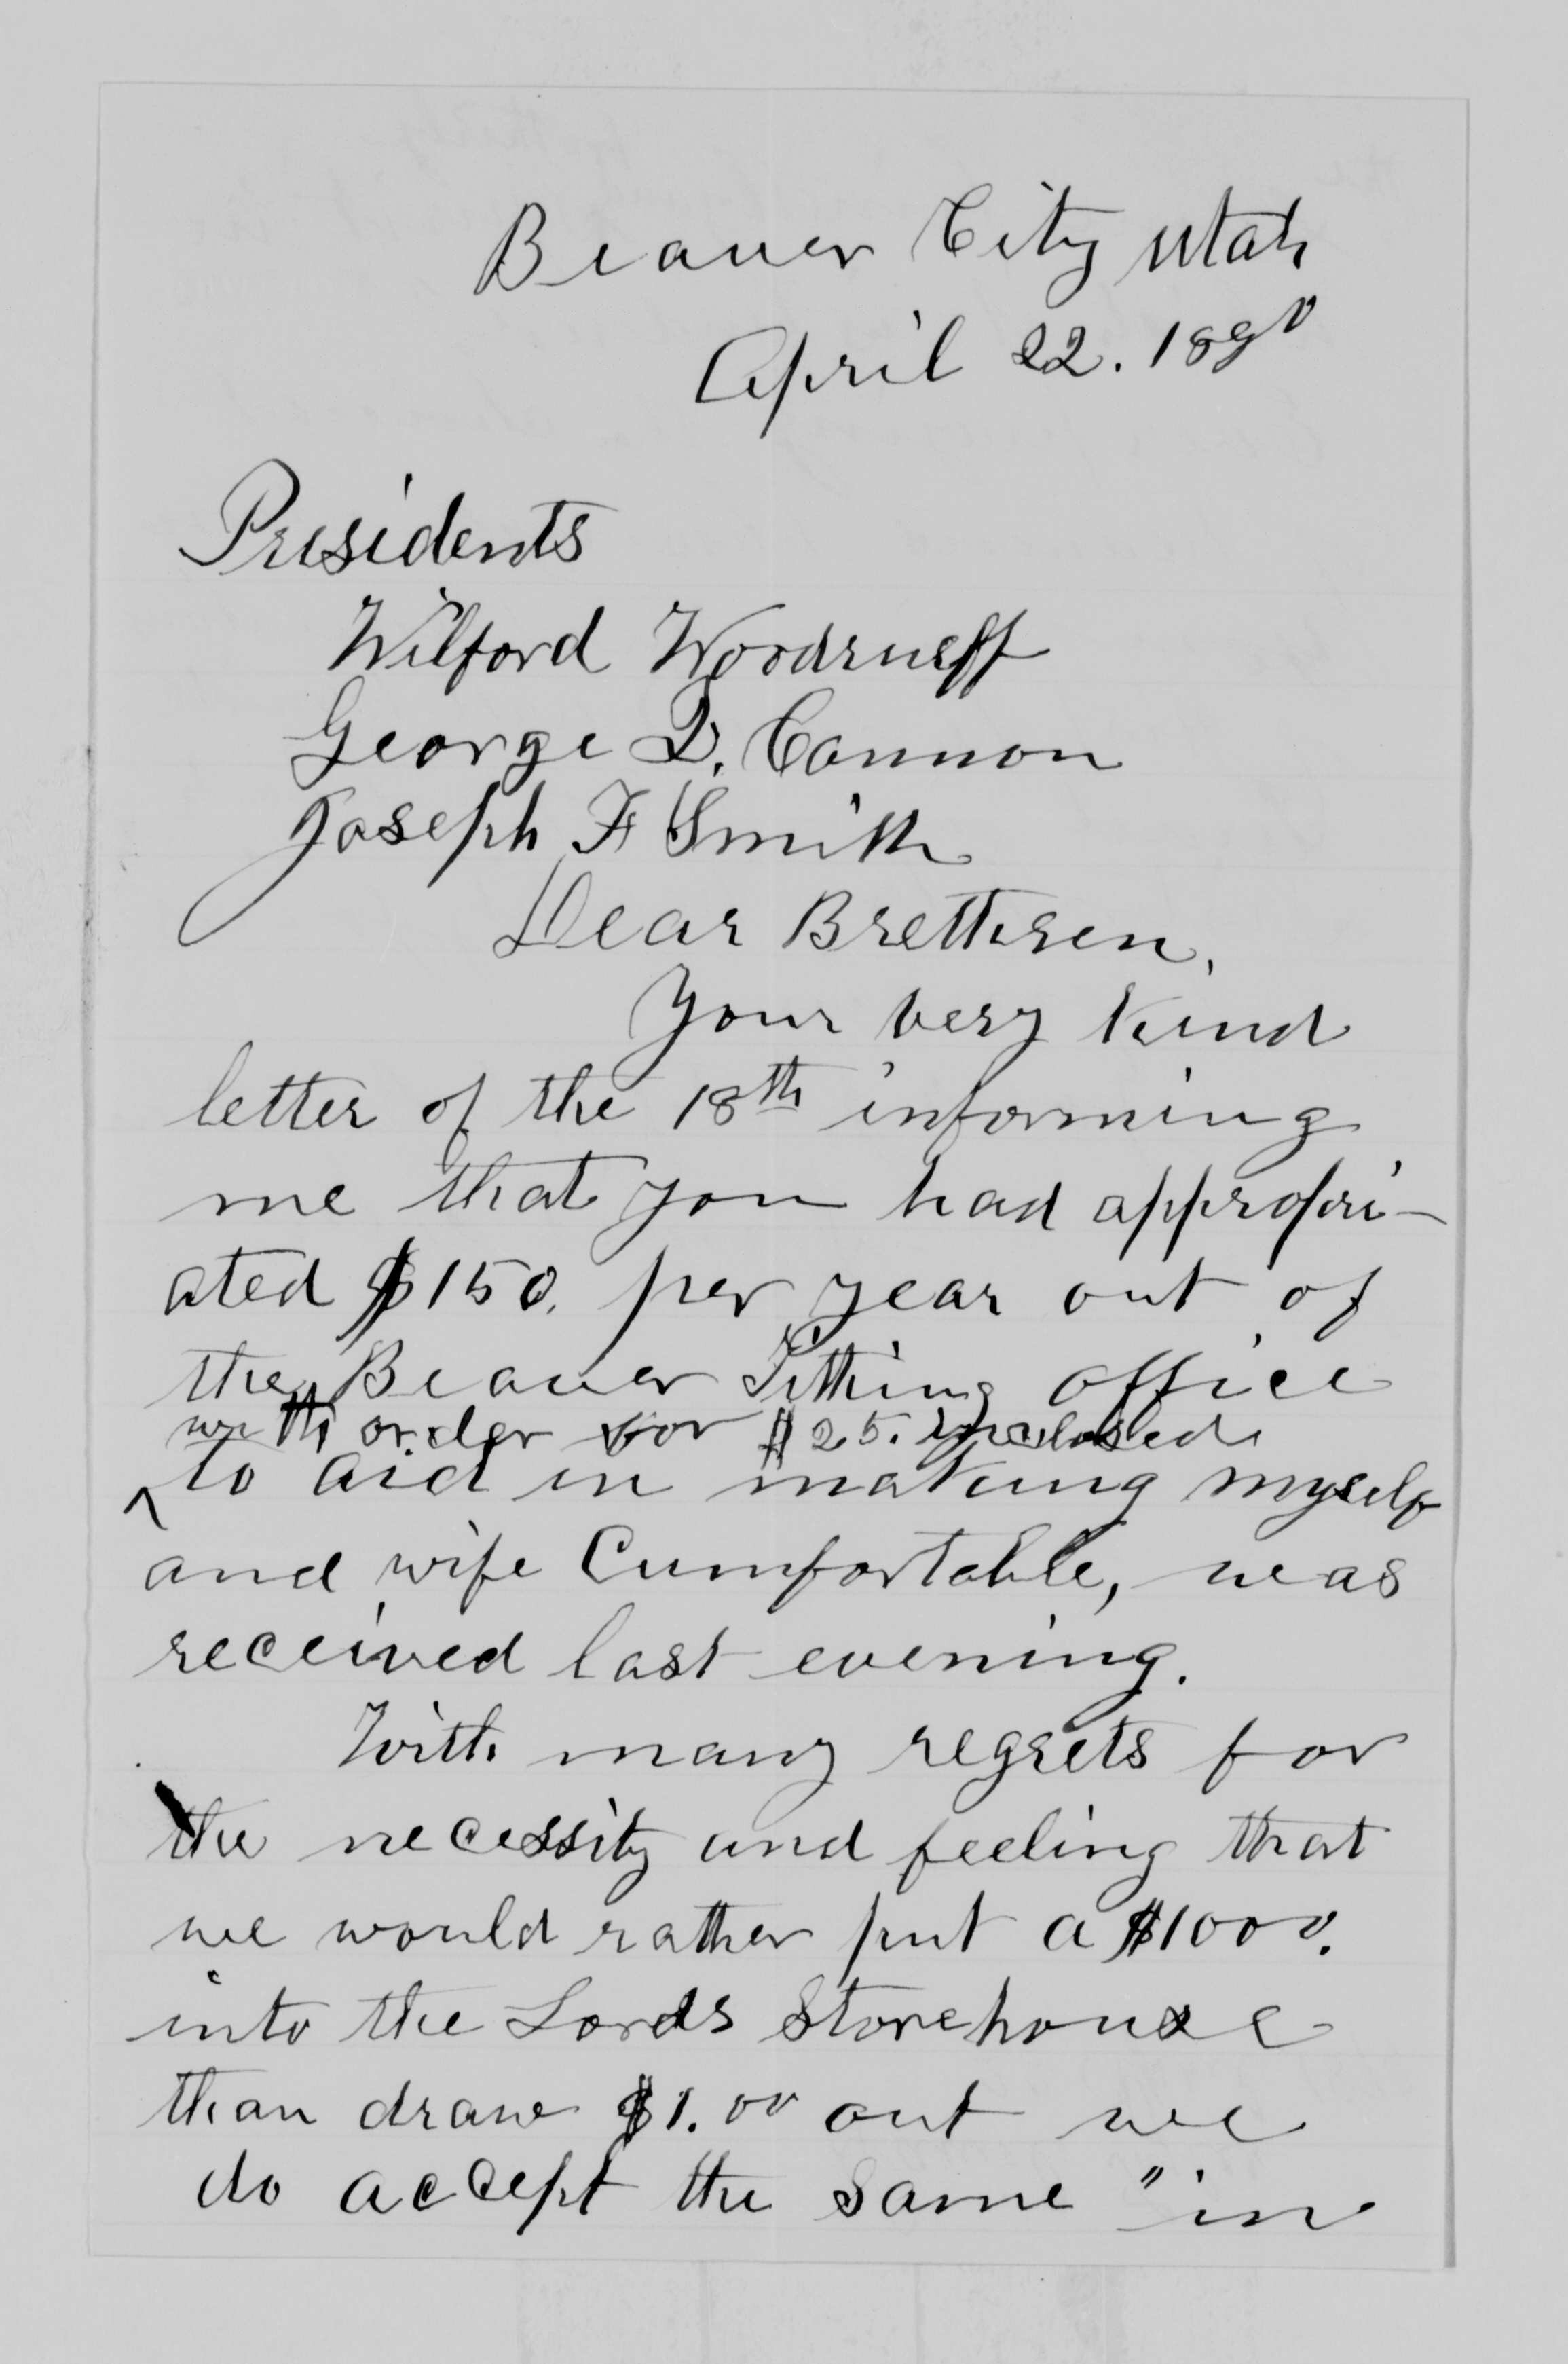 Beaver City Utah
April 22. 1890
Presidents
Wilford Woodrueff
George Q. Cannon
Joseph F Smith
Dear Brethren,
Your very kind
letter of the 18th informing
me that you had appropri-
ated $150. per year out of
the Beaver Tithing office
with order for $25. inclosed
^ to aid in making myself
and wife Cumfortable, was
received last evening.
With many regrets for
the necessity and feeling that
we would rather put a $1000.
into the Lords Storehouse
than draw $1.00 out we
do accept the same "in